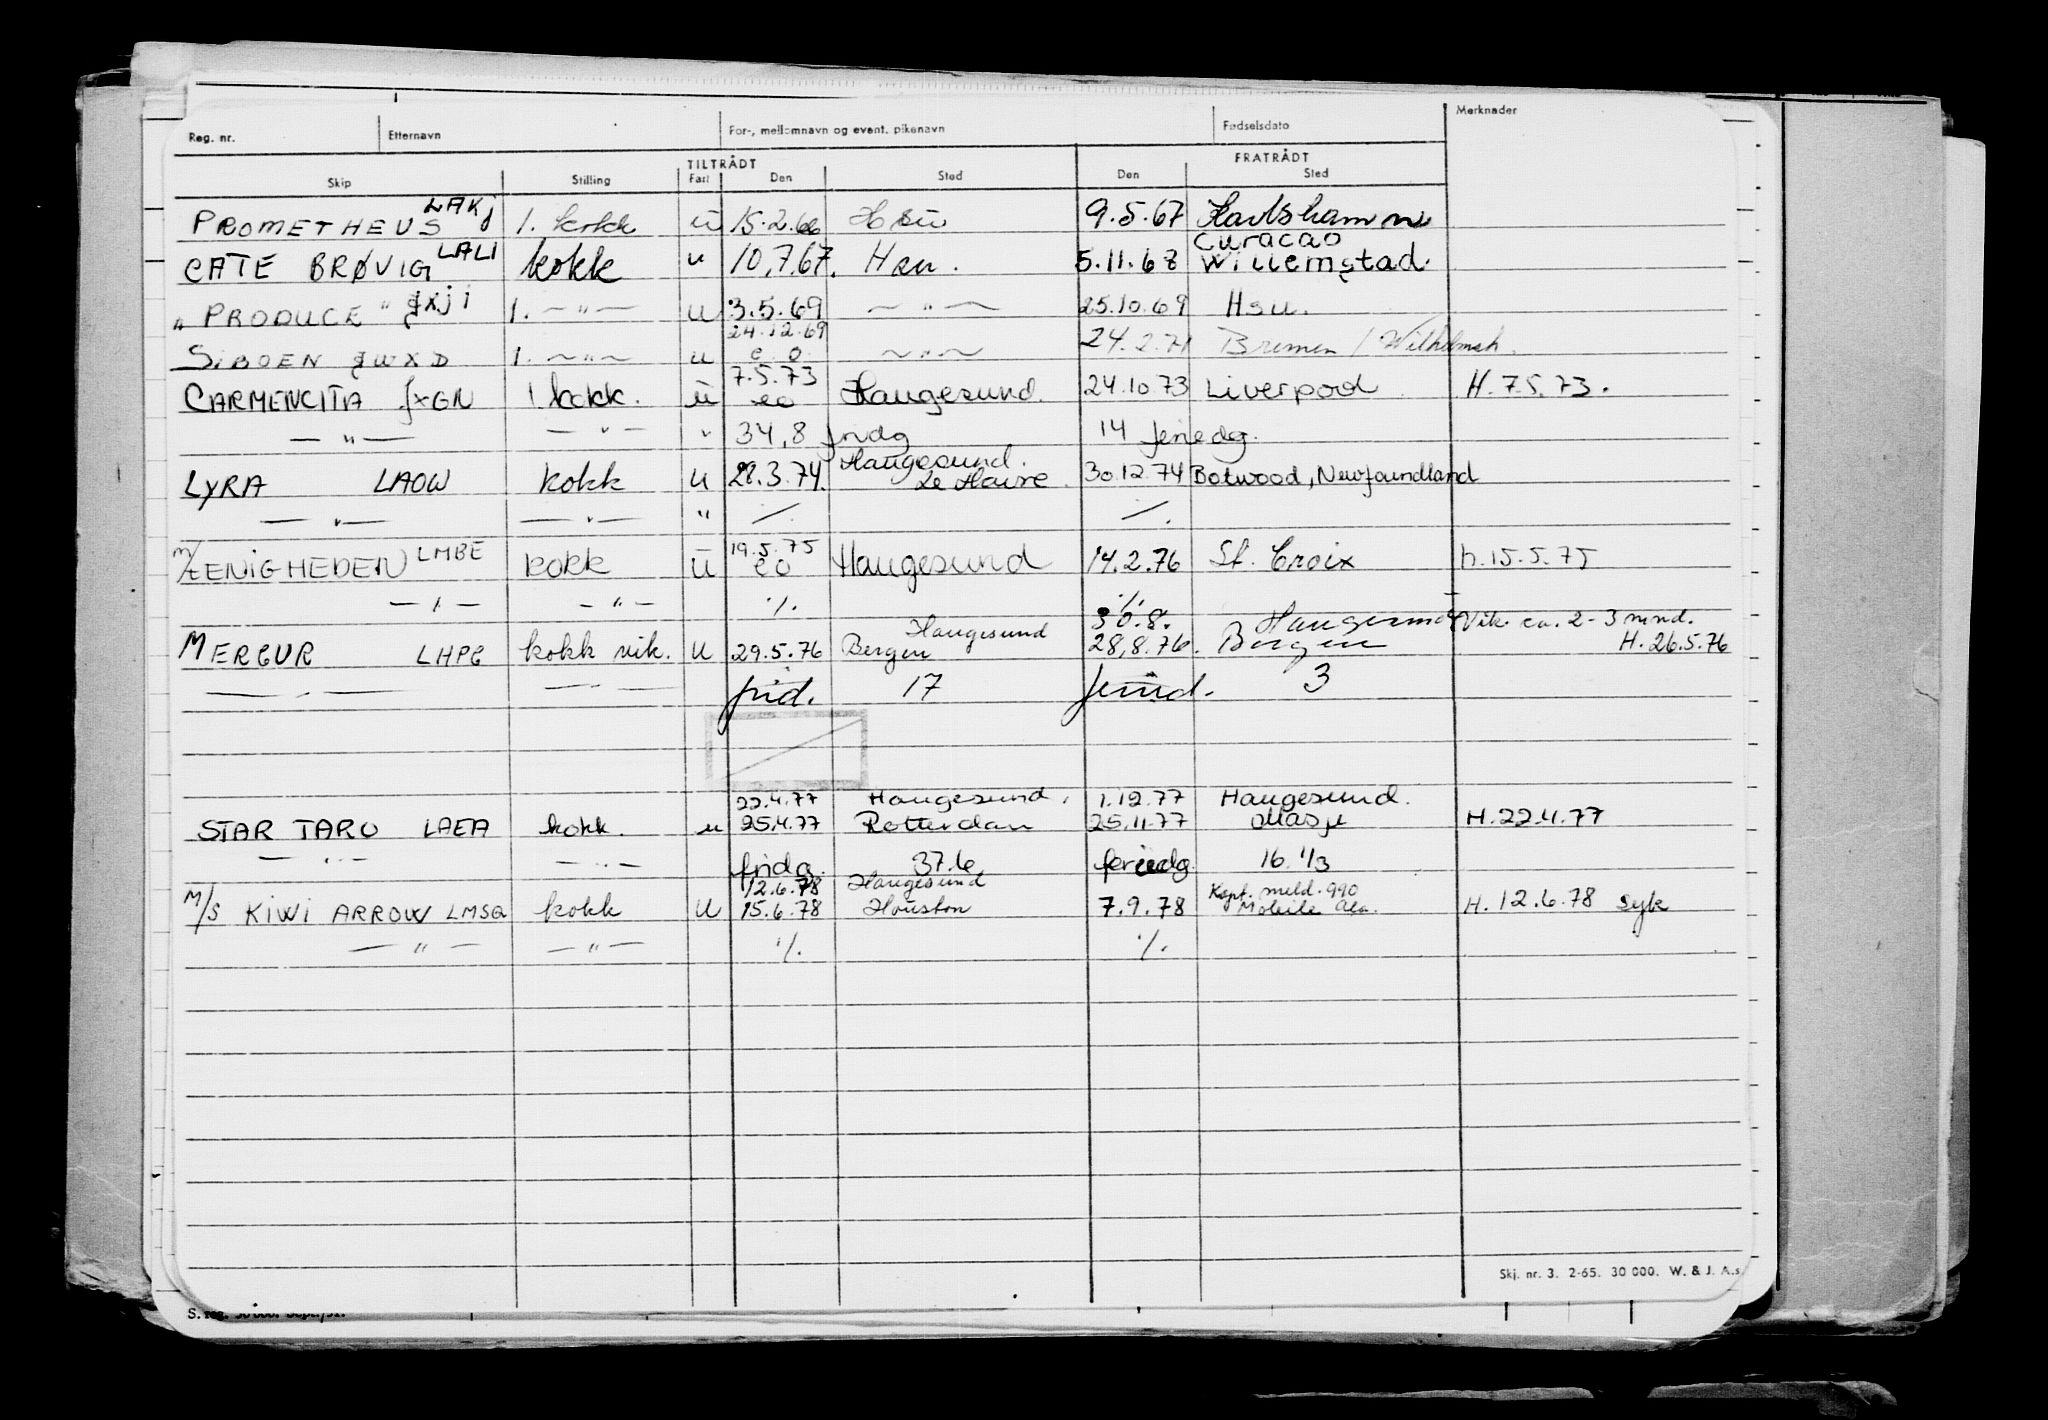 Reg. nr. Etternavn For-, mellomnavn og event. pikenavn Fødselsdato Merknader
TILTRÅDT FRATRÅDT
Skip Stilling Fart Den Sted Den Sted
PROMETHEUS LAKj 1. kokk u 15.2.66 Hsu 9.5.67 Karlshamn
CATE BRØVIG LALI kokk u 10.7.67. Hsu. 5.11.68 Curacao Willemstad.
" PRODUCE " jxji 1. —"— u 3.5.69 —"— 25.10.69 Hsu.
SIBOEN jwXD 1. —"— u 24.12.69 e.o. —"— 24.2.71 Bremen / Wilhelmsh.
CARMENCITA jxGN 1 kokk. u 7.5.73 eo Haugesund. 24.10.73 Liverpool H. 7.5.73.
—"— —"— " 34,8 fridg 14 feriedg.
LYRA LAOW kokk u 28.3.74. Haugesund. Le Havre. 30.12.74 Botwood, Newfoundland
—"— —"— " ./. ./.
M/ ENIGHEDEN LMBE kokk u 19.5.75 eo Haugesund 14.2.76 St. Croix h.15.5.75
—"— —"— ./. ./.
MERCUR LHPG kokk vik. u 29.5.76 Bergen Haugesund 30.8. 28.8.76. Haugesund Bergen Vik. ca. 2-3 mnd. H. 26.5.76
—"— —"— frid. 17 feried. 3
STAR TARO LAEA kokk. u 22.4.77 25.4.77 Haugesund. Rotterdam 1.12.77 25.11.77 Haugesund. H. 22.4.77
—"— —"— fridg. 37.6 feriedg. 16 1/3
M/S KIWI ARROW LMSQ kokk u 12.6.78 15.6.78 Haugesund Houston 7.9.78 Kapt. meld. 990 Mobile Ala. H. 12.6.78 syk
—"— —"— ./. ./.
Skj. nr. 3. 2-65. 30 000. W. & J. A.s